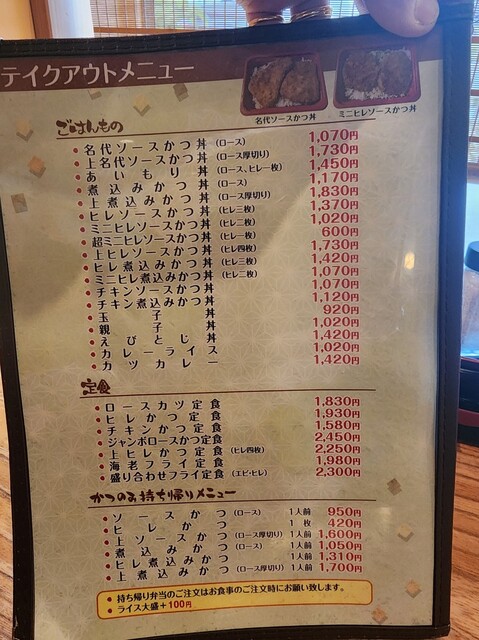 テイクアウトメニュー
名代ソースかつ丼
ミニヒレソースかつ丼
ごはんもの
• 名代ソースかつ丼 (ロース) 1,070円
• 上名代ソースかつ丼 (ロース厚切り) 1,730円
• あいもり丼 (ロース、ヒレ一枚) 1,450円
• 煮込みかつ丼 (ロース) 1,170円
• 上煮込みかつ丼 (ロース厚切り) 1,830円
• ヒレソースかつ丼 (ヒレ三枚) 1,370円
• ミニヒレソースかつ丼 (ヒレ二枚) 1,020円
• 超ミニヒレソースかつ丼 (ヒレ一枚) 600円
• 上ヒレソースかつ丼 (ヒレ四枚) 1,730円
• ヒレ煮込みかつ丼 (ヒレ三枚) 1,420円
• ミニヒレ煮込みかつ丼 (ヒレ二枚) 1,070円
• チキンソースかつ丼 1,070円
• チキン煮込みかつ丼 1,120円
• 玉子丼 920円
• 親子丼 1,020円
• えびとじ丼 1,420円
• カレーライス 1,020円
• カツカレー 1,420円
定食
• ロースカツ定食 1,830円
• ヒレかつ定食 1,930円
• チキンかつ定食 1,580円
• ジャンボロースかつ定食 2,450円
• 上ヒレかつ定食 (ヒレ四枚) 2,250円
• 海老フライ定食 1,980円
• 盛り合わせフライ定食 (エビ・ヒレ) 2,300円
かつのみ持ち帰りメニュー
• ソースかつ (ロース) 1人前 950円
• ヒレかつ 1枚 420円
• 上ソースかつ (ロース厚切り) 1人前 1,600円
• 煮込みかつ (ロース) 1人前 1,050円
• ヒレ煮込みかつ 1人前 1,310円
• 上煮込みかつ (ロース厚切り) 1人前 1,700円
• 持ち帰り弁当のご注文はお食事のご注文時にお願い致します。
• ライス大盛＋100円